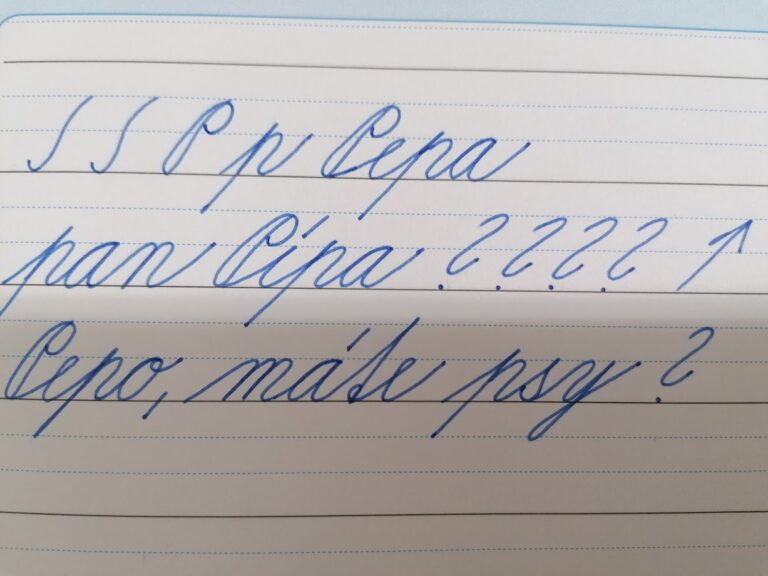 ∫ ∫ P p Pepa
pan Pípa ???? ↑
Pepo, máte psy?